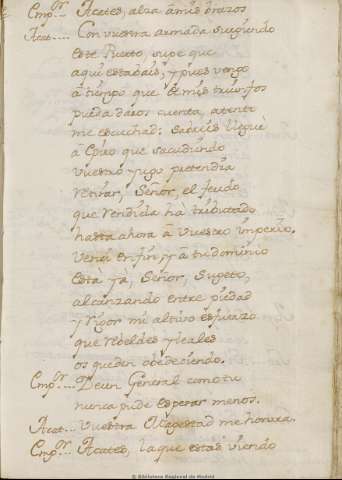 Emp.ᵒʳ Acates, alza â mis brazos
Acat.... Con vuestra armada surgiendo
este Puerto, supe que
aqui estabais; y pues vengo
â tiempo que de mis triunfos
pueda daros cuenta, atento
me escuchad: Sabreis llegué
â Epiro que sacudiendo
vuestro yugo pretendia
retirar, Señor, el feudo
que rendida hà tributado
hasta ahora â Vuestro imperio.
Vencí en fin, y â tu dominio
Està yà, Señor, Sugeto,
alcanzando entre piedad
y rigor mi altivo esfuerzo
que rebeldes y leales
os queden obedeciendo.
Emp.ᵒʳ... De un General como tu
nunca pude esperar menos.
Acat... Vuestra Magestad me honrra.
Emp.ᵒʳ... Acates, la que estás viendo
© Biblioteca Regional de Madrid